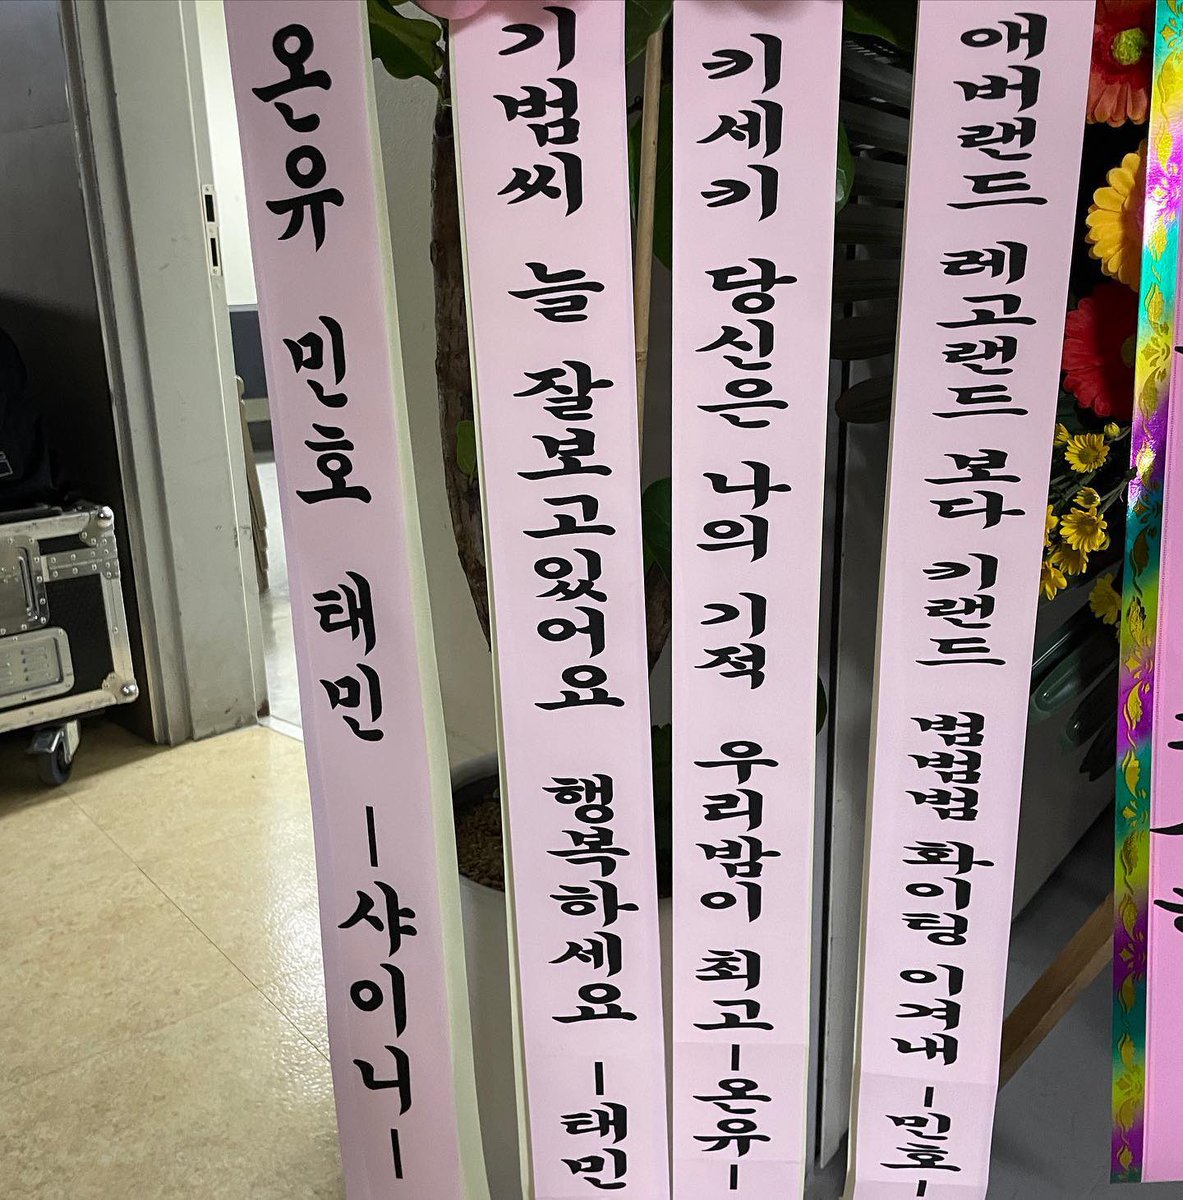 온유 민호 태민 -샤이니-
기범씨 늘 잘보고있어요 행복하세요 -태민
키세키 당신은 나의 기적 우리밤이 최고-온유-
애버랜드 레고랜드 보다 키랜드 범범범 화이팅 이겨내 -민호-